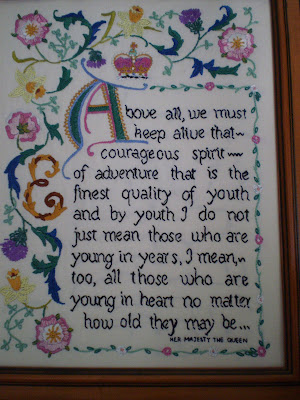 Above all, we must
keep alive that
courageous spirit
of adventure that is the
finest quality of youth
and by youth I do not
just mean those who are
young in years, I mean,
too, all those who are
young in heart no matter
how old they may be...
HER MAJESTY THE QUEEN